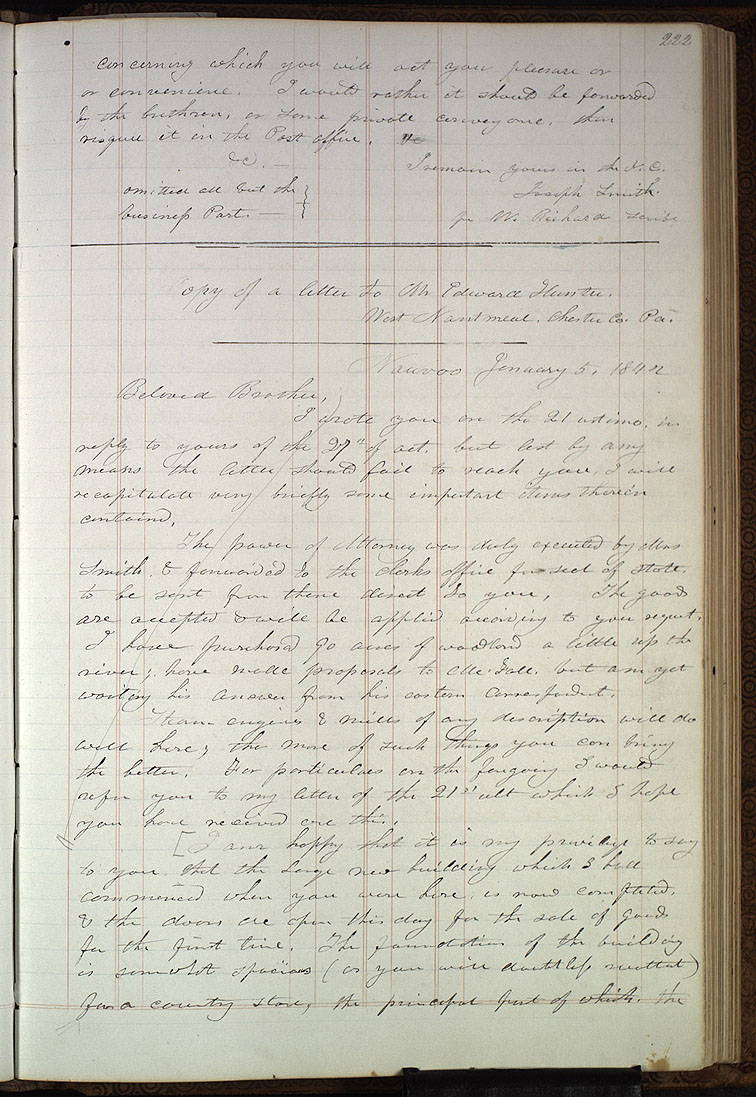 222
concerning which you will act you pleasure or
or convenience. I would rather it should be forwarded
by the brethren, or some private conveyance, than
risque it in the Post office. &c
&c. — I remain yours in the
omitted all but the Joseph Smith.
business Part. — pr W. Richard Scribe
Copy of a letter to Mr Edward Hunter.
West Nantmeal. Chester Co. Pa.
Nauvoo January 5, 1842
Beloved Brother,
I wrote you on the 21 ultimo. in
reply to yours of the 27th of oct. but lest by any
means the letter should fail to reach you I will
recapitulate very briefly some important items therein
contained,
The power of Attorney was duly executed by Mrs
Smith. & forwarded to the Clerks office for seal of State.
to be sent from there direct to you, The goods
are accepted & will be applied according to you request.
I have purchased 90 acres of woodland a little up the
river; have made proposals to Mc Fall. but am yet
waiting his answer from his eastern correspondent.
Steam engines & mills of any description will do
well here; the more of such things you can bring
the better. For particulars on the forgoing I would
refer you to my letter of the 21st ult which I hope
you have received ere this.
[I am happy that it is my privilege to say
to you that the large new building which I had
commenced when you were here, is now completed,
& the doors are open this day for the sale of goods
for the first time. The foundation of the building
is somewhat spacious (as you will doubtless recollect)
for a country store, the principal part of which. the